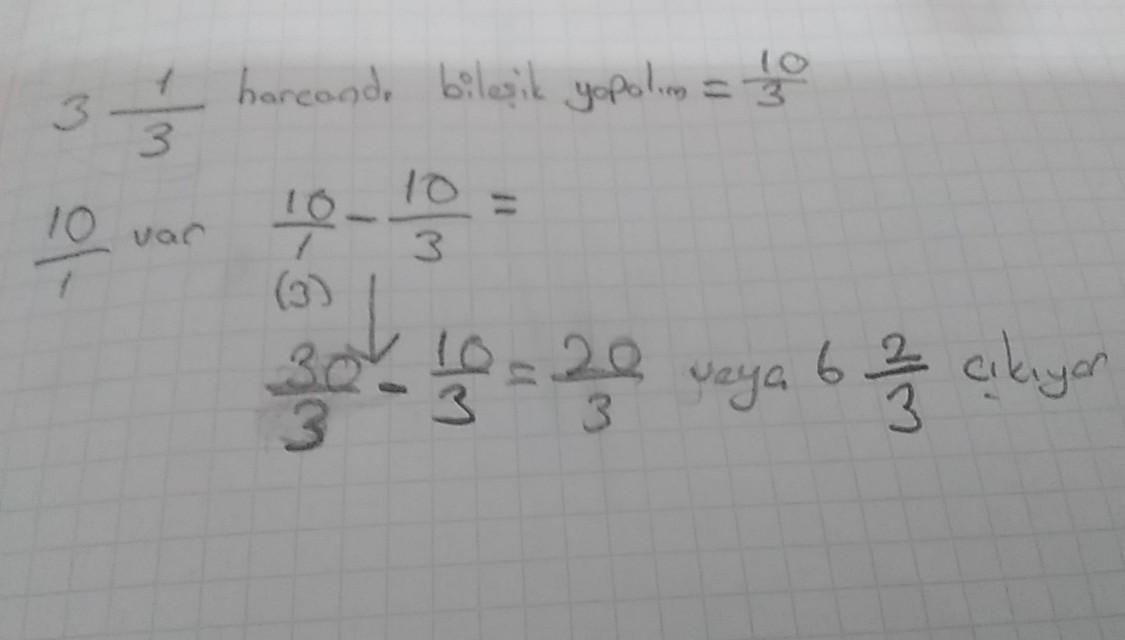 3 1/3 harcandı bileşik yapalım = 10/3
10/1 var 10/1 - 10/3 =
(3)
30/3 - 10/3 = 20/3 veya 6 2/3 çıkıyor